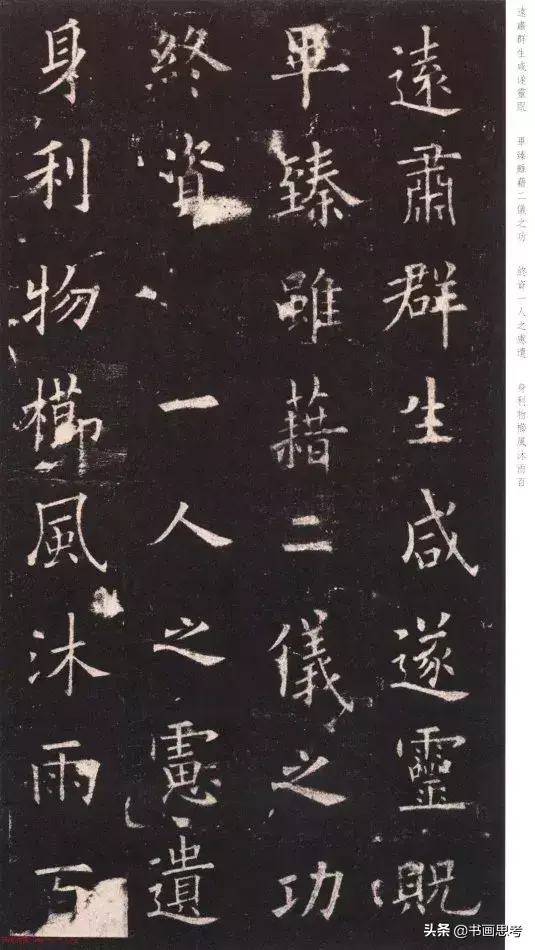 遠肅群生咸遂靈貺　畢臻雖藉二儀之功　終資一人之慮遺　身利物櫛風沐雨百
遠肅群生咸遂靈貺
畢臻雖藉二儀之功
終資一人之慮遺
身利物櫛風沐雨百
头条 @书画思考